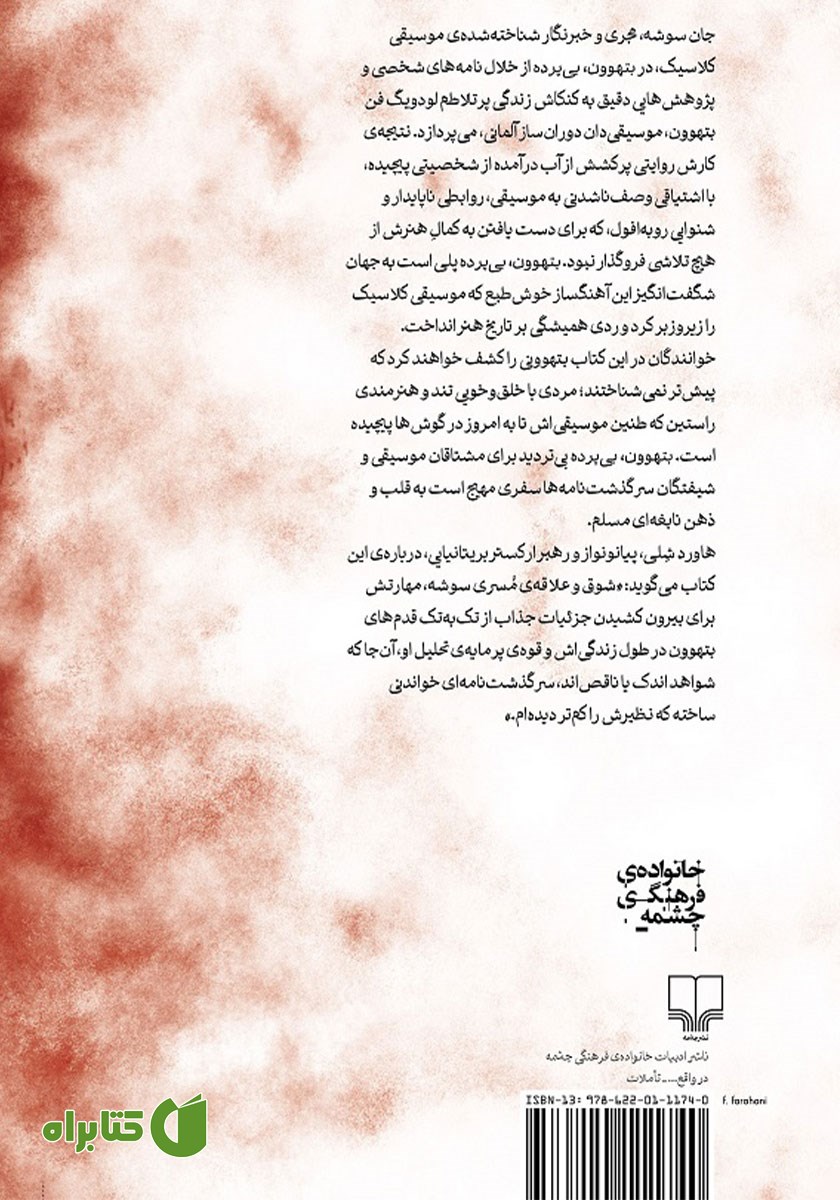 جان سوشه، مجری و خبرنگار شناخته‌شده‌ی موسیقی
کلاسیک، در بتهوون، بی‌پرده از خلال نامه‌های شخصی و
پژوهش‌هایی دقیق به کنکاش زندگی پرتلاطم لودویگ فن
بتهوون، موسیقی‌دان دوران‌ساز آلمانی، می‌پردازد. نتیجه‌ی
کارش روایتی پرکشش از آب درآمده از شخصیتی پیچیده،
با اشتیاقی وصف‌ناشدنی به موسیقی، روابطی ناپایدار و
شنوایی روبه‌افول، که برای دست یافتن به کمالِ هنرش از
هیچ تلاشی فروگذار نبود. بتهوون، بی‌پرده پلی است به جهان
شگفت‌انگیز این آهنگساز خوش‌طبع که موسیقی کلاسیک
را زیروزبر کرد و ردی همیشگی بر تاریخ هنر انداخت.
خوانندگان در این کتاب بتهوونی را کشف خواهند کرد که
پیش‌تر نمی‌شناختند؛ مردی با خلق‌وخویی تند و هنرمندی
راستین که طنین موسیقی‌اش تا به امروز در گوش‌ها پیچیده
است. بتهوون، بی‌پرده بی‌تردید برای مشتاقان موسیقی و
شیفتگان سرگذشت‌نامه‌ها سفری مهیج است به قلب و
ذهن نابغه‌ای مسلم.
هاورد شِلی، پیانونواز و رهبر ارکستر بریتانیایی، درباره‌ی این
کتاب می‌گوید: «شوق و علاقه‌ی مُسری سوشه، مهارتش
برای بیرون کشیدن جزئیات جذاب از تک‌به‌تک قدم‌های
بتهوون در طول زندگی‌اش و قوه‌ی پرمایه‌ی تحلیل او، آن‌جا که
شواهد اندک یا ناقص‌اند، سرگذشت‌نامه‌ای خواندنی
ساخته که نظیرش را کم‌تر دیده‌ام.»
خانواده‌ی
فرهنگی
چشمه
نشرچشمه
ناشر ادبیات خانواده‌ی فرهنگی چشمه
در واقع.... ـ تأملات
ISBN-13: 978-622-01-1174-0
f. farahani
کتابراه